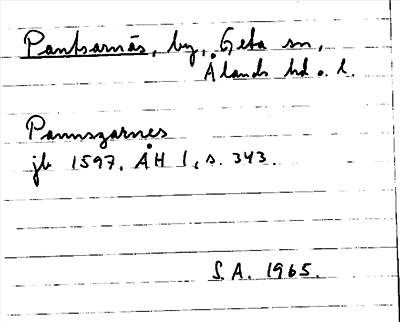 Pantsarnäs, by, Geta sn,
Ålands hd o. l.
Pannszarnes
jb 1597. ÅH 1, s. 343.
S.A. 1965.